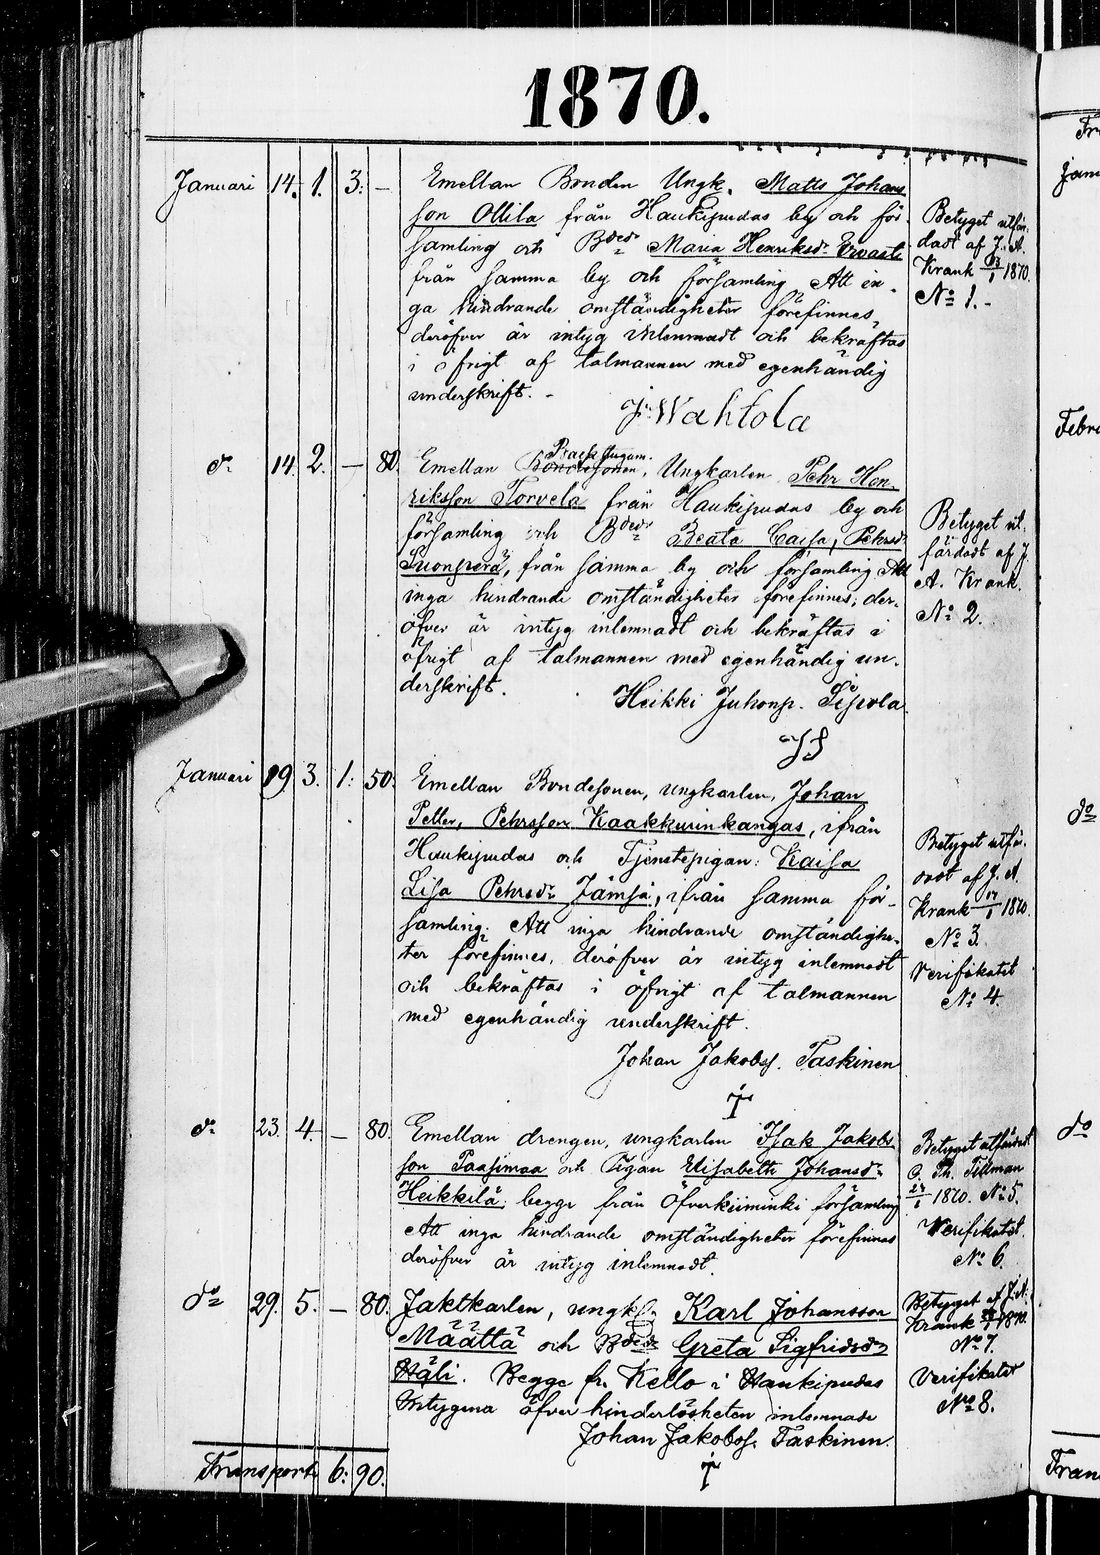 1870.
Januari 14. 1. 3. — Emellan Bonden Ungk. Matts Johans
son Ollila från Haukipudas by och för
samling och Bdedr Maria Henriksdr Ervasti
från samma by och församling Att in
ga hindrande omständigheter förefinnes,
deröfver är intyg inlemnadt och bekräftas
i öfrigt af talmannen med egenhändig
underskrift. -
Betyget utfär.
dadt af J. A.
Krank 13/1 1870.
No 1. -
J. Wahtola
do 14. 2. — 80. Emellan Ungkarlen Pehr Hen
riksson Torvela från Haukipudas by och
församling och Bdedr Beata Caisa, Pehrsdr
från samma by och församling Att
inga hindrande omständigheter förefinnes; der.
öfver är intyg inlemnadt och bekräftas i
öfrigt af talmannen med egenhändig un.
derskrift.
Betyget ut.
färdadt af J.
A. Krank.
No 2.
Heikki Juhonp.
Januari 19 3. 1: 50. Emellan Bondesonen, ungkarlen, Johan
Petter, Pehrsson Kaakkurinkangas, ifrån
Haukipudas och Tjenstepigan: Kaisa
Lisa Pehrsdr Jämsä, ifrån samma för-
samling: Att inga hindrande omständighe.
ter förefinnes, deröfver är intyg inlemnadt
och bekräftas i öfrigt af talmannen
med egenhändig underskrift.
Betyget utfär.
dadt af J. A.
Krank 1870.
No 3.
Verifikatet
No 4.
Johan Jakobss. Taskinen
do 23. 4. — 80. Emellan drengen, ungkarlen Isak Jakobs
son Paasimaa och Pigan Elisabeth Johansdr
Heikkilä; begge från Öfverkiiminki församling
Att inga hindrande omständigheter förefinnes
deröfver är intyg inlemnadt.
Betyget utfärdadt
C. Th. Tillman
1870. No 5.
Verifikatet.
No 6.
do 29. 5. — 80. Jaktkarlen, ungk. Karl Johansson
Määttä och Bdedr Greta Sigfridsdr
Häli. Begge fr. Kello i Haukipudas
Intygena öfver hinderlösheten inlemnade
Betyget af J. A.
Krank 1870.
No 7.
Verifikatet
No 8.
Johan Jakobss. Taskinen.
Transport 6: 90.